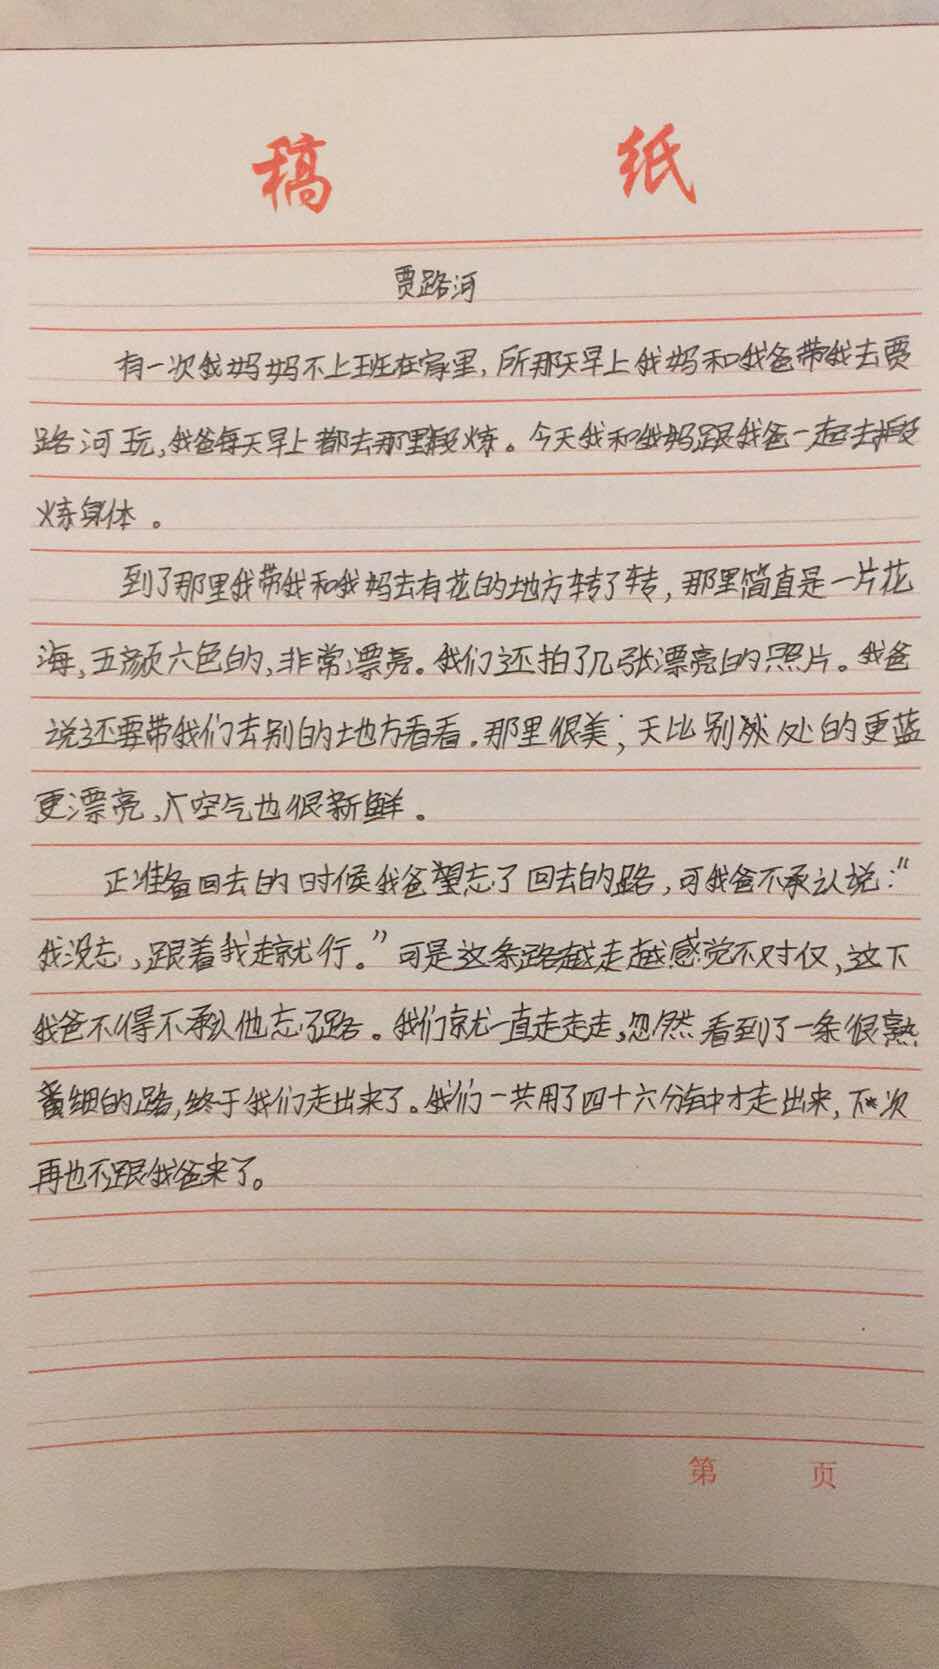 稿 纸
贾路河
有一次我妈妈不上班在家里,所那天早上我妈和我爸带我去贾
路河玩,我爸每天早上都去那里锻炼。今天我和我妈跟我爸一起去锻
炼身体。
到了那里我带我和我妈去有花的地方转了转,那里简直是一片花
海,五颜六色的,非常漂亮。我们还拍了几张漂亮的照片。我爸
说还要带我们去别的地方看看。那里很美;天比别处的更蓝
更漂亮、空气也很新鲜。
正准备回去的时候我爸望忘了回去的路,可我爸不承认说:“
我没忘,跟着我走就行。”可是这条路越走越感觉不对仅,这下
我爸不得不承认他忘了路。我们就一直走走走,忽然看到了一条很熟
细的路,终于我们走出来了。我们一共用了四十六分钟才走出来,下次
再也不跟我爸来了。
第 页